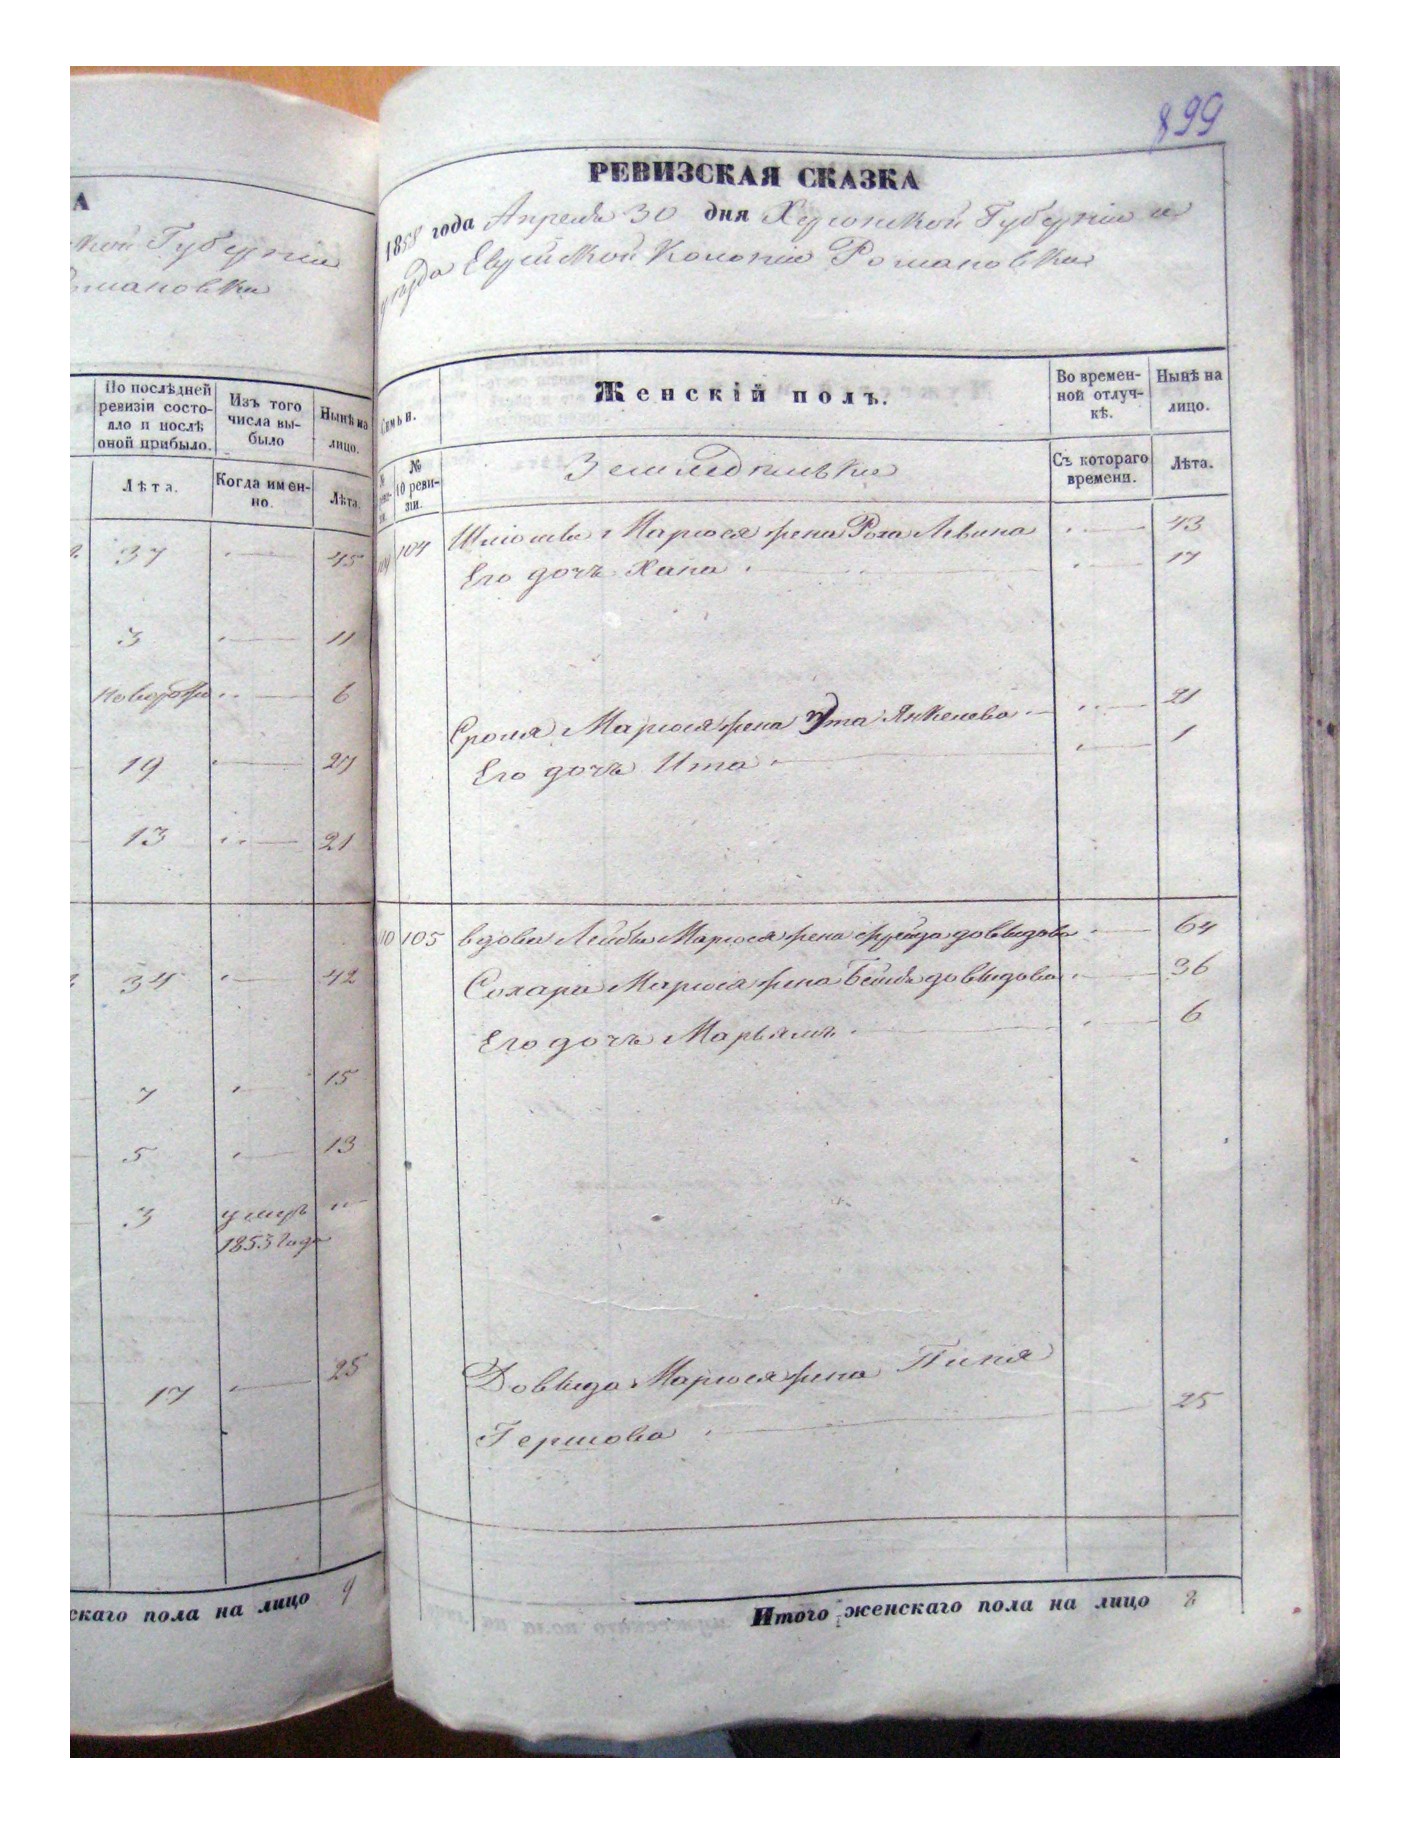 899
А
кой Губерніи
омановки
По послѣдней ревизіи состо-
яло и послѣ
оной прибыло.
Изъ того
числа вы-
было
Нынѣ на
лицо.
Лѣта.
Когда имен-
но.
Лѣта.
37 45
3 11
6
19 27
13 21
34 42
7 15
5 13
3 умеръ
1853 года
17 25
скаго пола на лицо 9
РЕВИЗСКАЯ СКАЗКА
1858 года Апреля 30 дня Херсонской Губерніи и
уезда Еврейской Колоніи Романовки
Семьи.
Женскій полъ.
Во времен-
ной отлуч-
кѣ.
Нынѣ на
лицо.
№
10 реви-
зіи.
Земледельцы
Съ котораго
времени.
Лѣта.
104 Шліомы Маріося жена Роха Левина 43
Его дочь Хана 17
Сроля Маріося жена Эта Янкелева 21
Его дочь Ита 1
110 105 вдова Лейбы Маріося жена Фрейда довыдова 64
Сохара Маріося жена Бейля довыдова 36
Его дочь Марьямъ 6
Довыда Маріося жена
Гершова 25
Итого женскаго пола на лицо 8